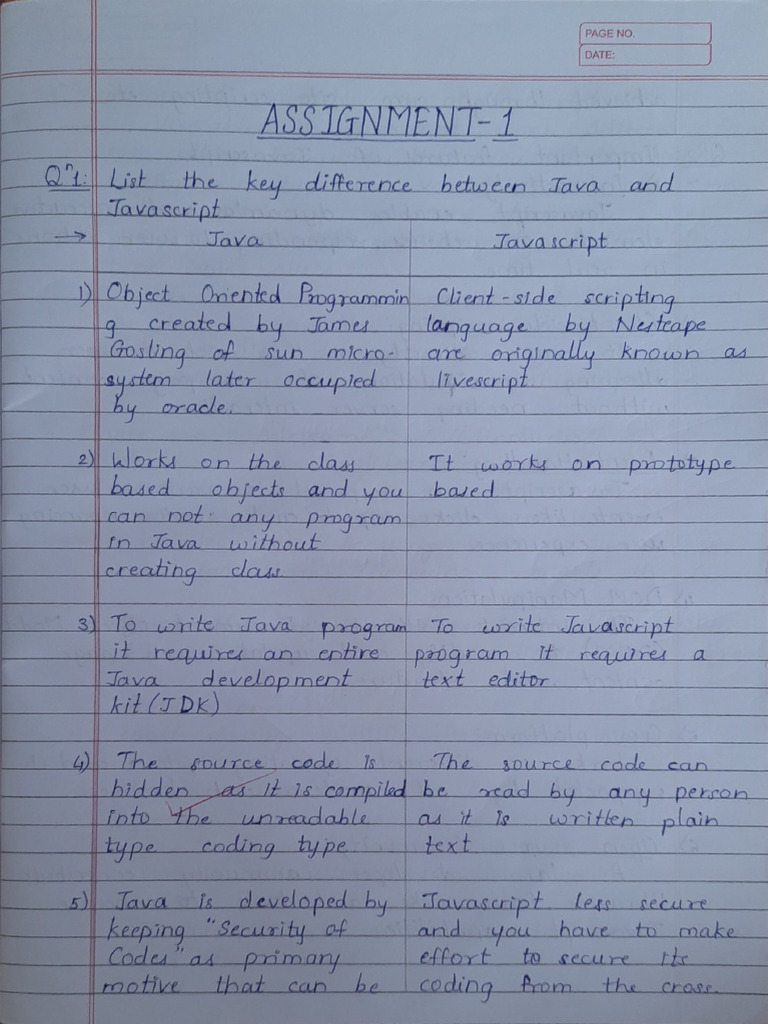 PAGE NO.
DATE:
ASSIGNMENT-1
Qⁿ1: List the key difference between Java and
Javascript
→ Java Javascript
1) Object Oriented Programmin Client-side scripting
g created by James language by Nestcape
Gosling of sun micro- are originally known as
system later occupied livescript
by oracle.
2) Works on the class It works on prototype
based objects and you based
can not any program
in Java without
creating class
3) To write Java program To write Javascript
it requires an entire program it requires a
Java development text editor
kit (JDK)
4) The source code is The source code can
hidden as it is compiled be read by any person
into the unreadable as it is written plain
type coding type text
5) Java is developed by Javascript less secure
keeping "Security of and you have to make
Codes" as primary effort to secure its
motive that can be coding from the cross.